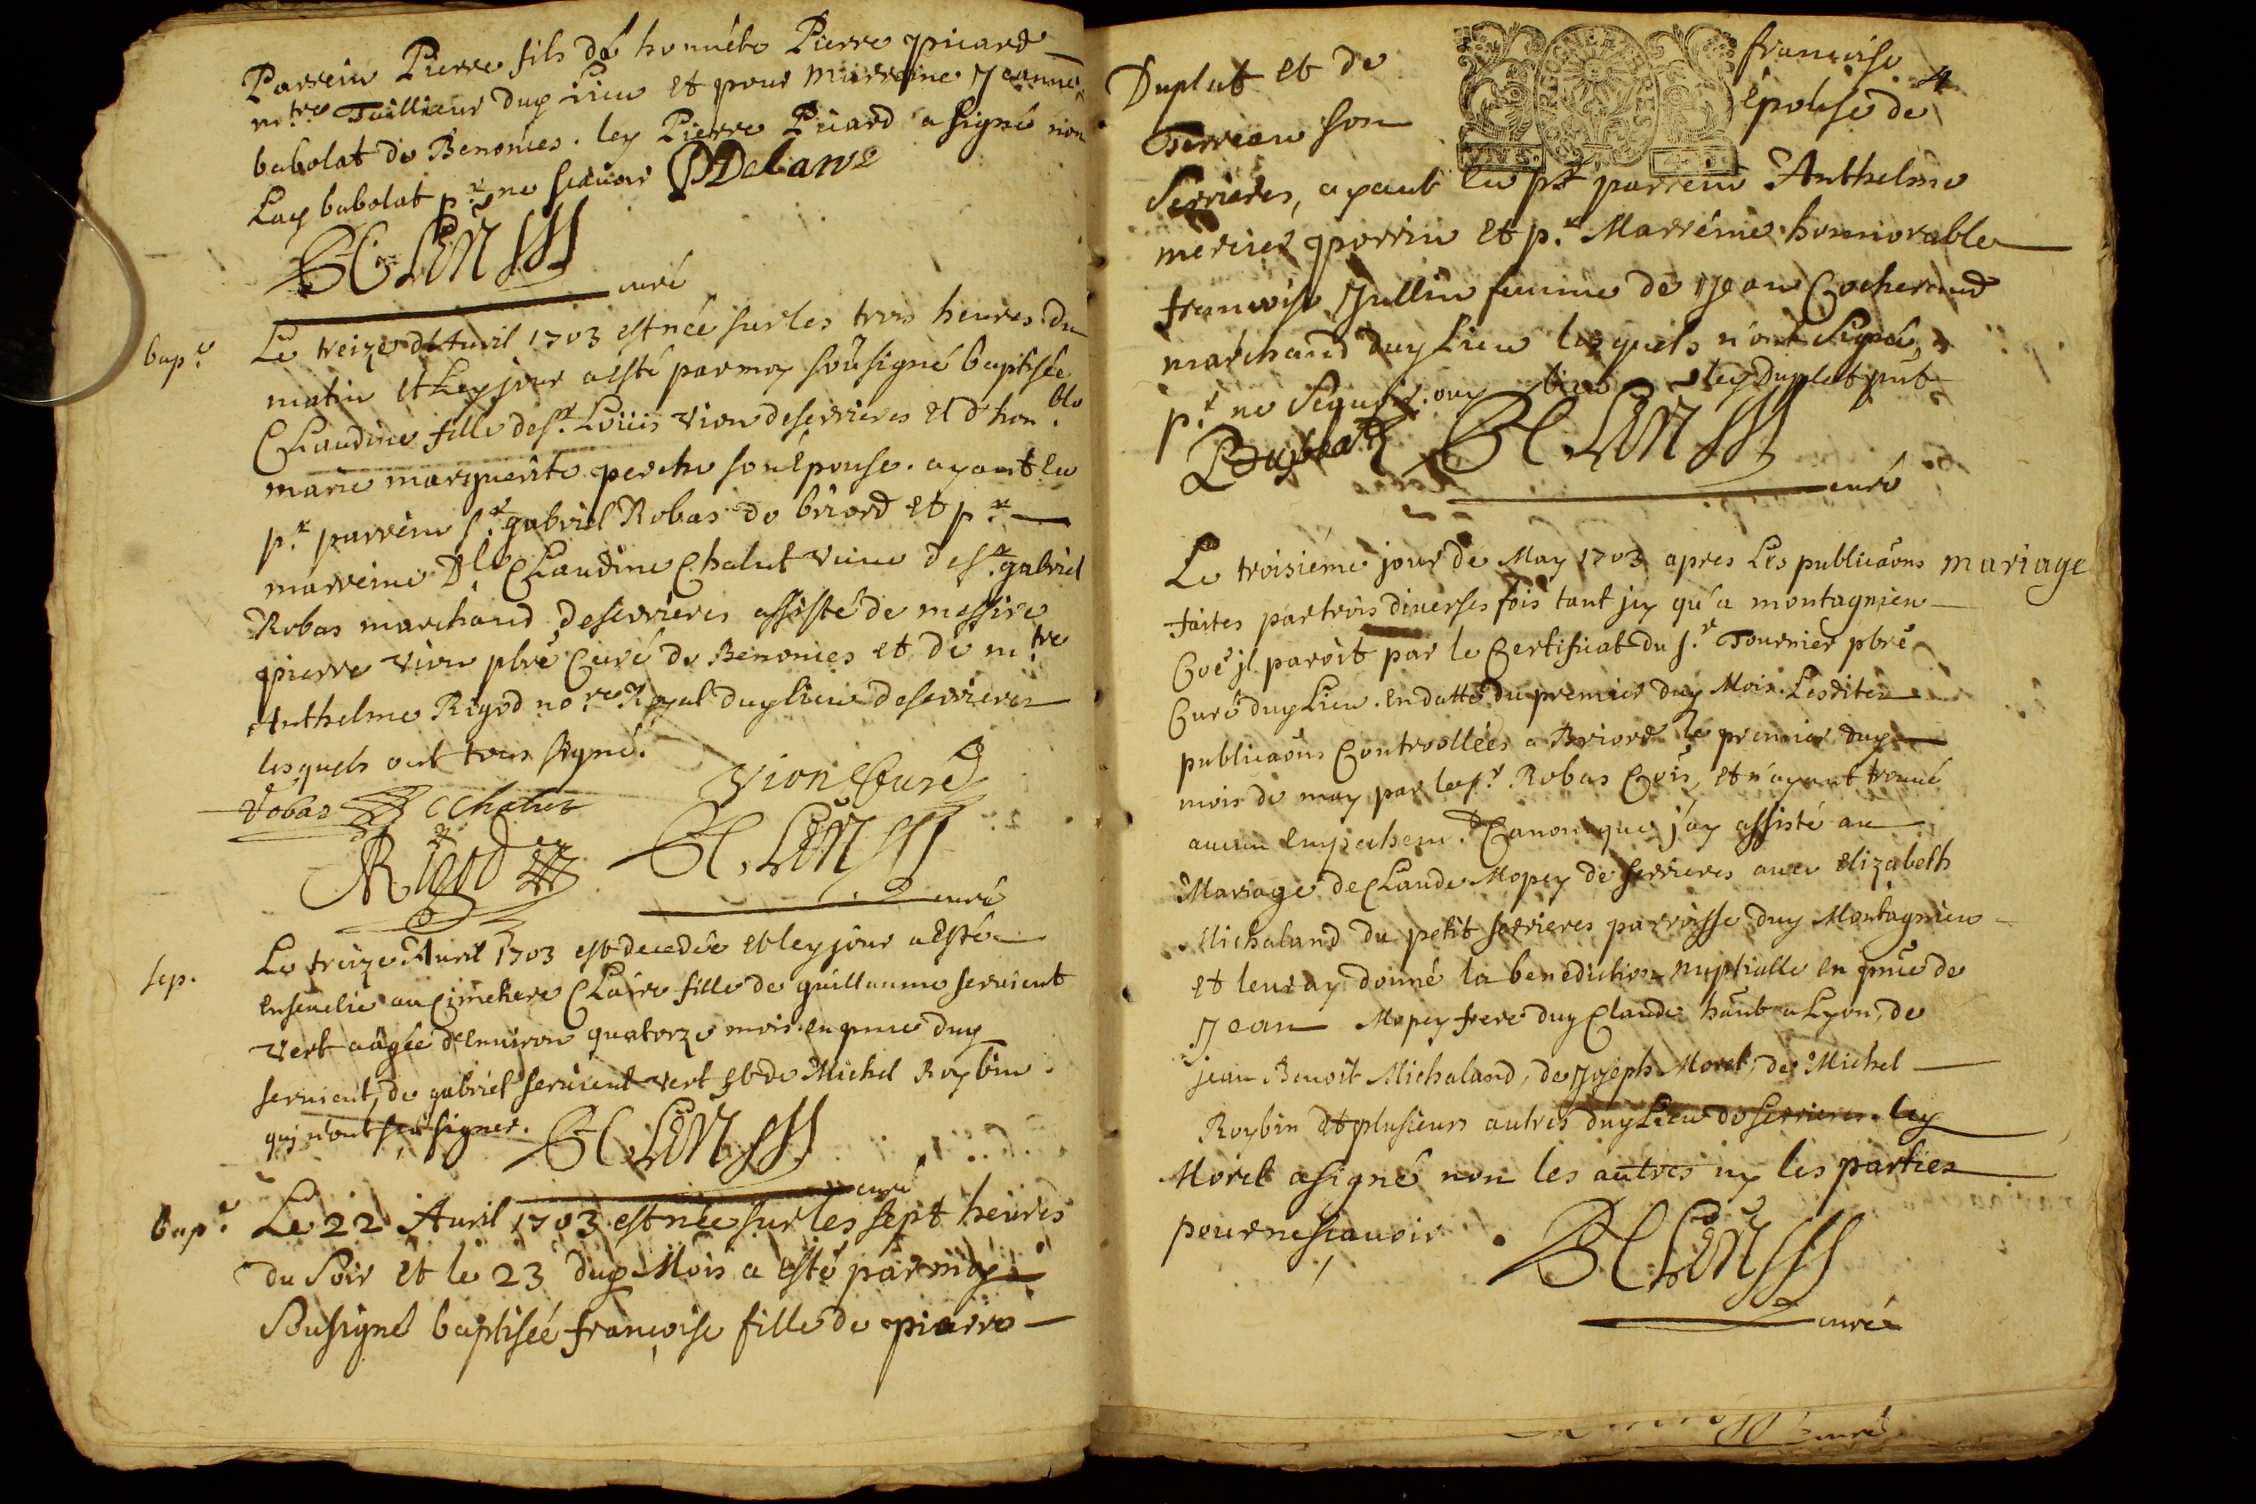 Parrein Pierre fils dé honnéte Pierre picard
m.tre Tailleur duy Lieu et pour marreine Jeanne
babolat de Benonces. ley Pierre Picard a signé non
Lay babolat p.r ne scavoir
curé
bap.e
Le treize d'Auril 1703 est née sur les trois heures du
matin et Ley jour a esté par moy soûsigné baptisée
Claudine fille de s.r Loüis Vion de serrieres et d'hon.ble
marie marguerite perche son épouse. ayant eu
p.r parrein s.r gabriel Robas de briord et p.r
marreine D.le Claudine Chalut veuue de s.r gabriel
Robas marchand de serrieres assisté de messire
pierre Vion pbrē Curé de Benonces et de m.tre
Anthelme Rigod no.re Royal duy lieu de serrieres
lesquels ont tous signé.
Robas CChalut
Vion Curé
ARigod
curé
sep.
Le treize Auril 1703 est decedée et ley jour a esté
enseuelie au Cimetiere Claire fille de guillaume seruient
Vert aâgée d'enuiron quatorze mois en pnce duy
seruient, de gabriel seruient vert et de Michel Roybin
qui n'ont sceu signer.
curé
bap.e
Le 22 Auril 1703 est née sur les sept heures
du soir et le 23 duy Mois a esté par moy
soûsigné baptisée françoise fille de pierre
4
Duplat et de françoise
Terreau son épouse de
Serrieres, ayant eu p.r parrein Anthelme
mercier perrin et p.r Marreine honnorable
francoise Jullin femme de Jean Cocherand
marchand duy Lieu lesquels n'ont signé
p.r ne ley Duplat
PDuplat
curé
mariage
Le troisiéme jour de May 1703 apres Les publicaōns
faites par trois diuerses fois tant jcy qu'a montagnieu
Coē jl paroit par le Certificat du s.r Tournier pbrē
Curé duy Lieu en datte du premier duy Mois. Lesdites
publicaōns Controllées a Briord le premier duy
mois de may par le s.r Robas Cōis, et n'ayant trouué
aucun empechem.t Canonique j'ay assisté au
Mariage de Claude Mopey de serrieres auec Elizabeth
Michaland du petit serrieres parroisse duy Montagnieu
et leur ay donné la benediction nuptialle en pnce de
Jean Mopey frere duy Claude hābt a Lyon, de
jean Benoît Michaland, de Joseph Morel, de Michel
Roybin et plusieurs autres duy Lieu de serrieres. ley
Morel a signé non les autres ny les parties
pour ne scauoir.
curé